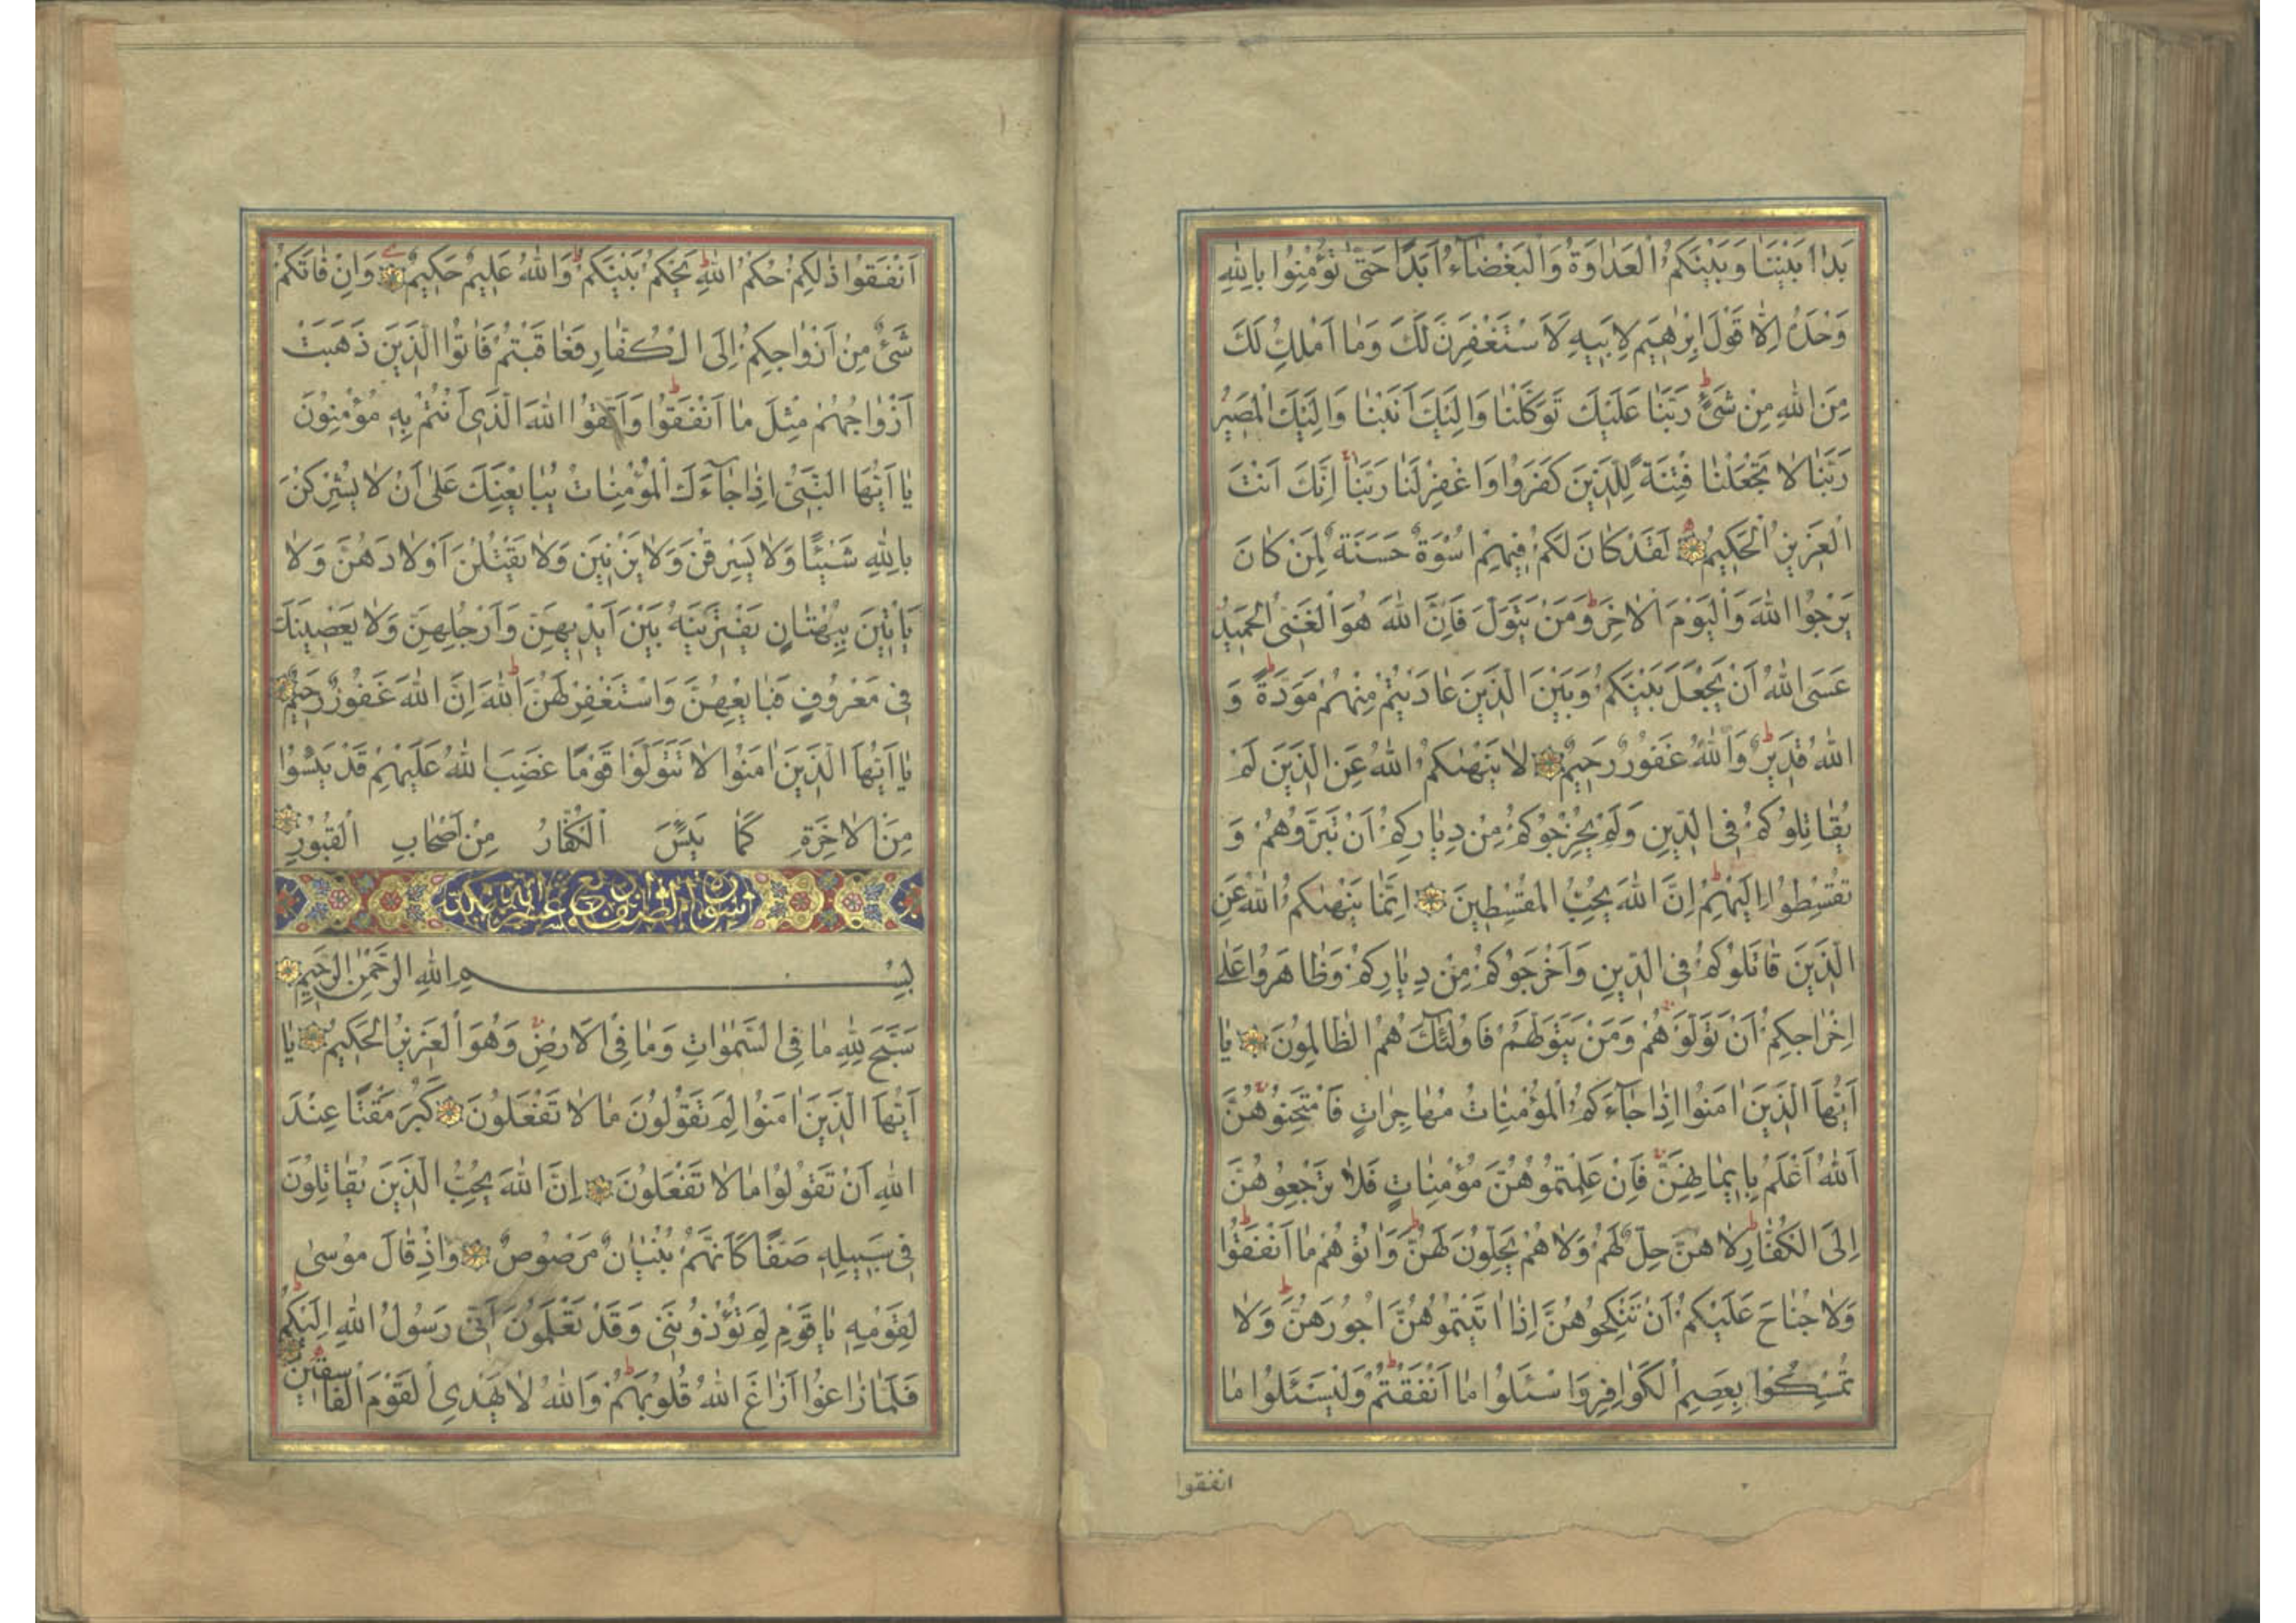 بَدَا بَيْنَنَا وَبَيْنَكُمُ الْعَدَاوَةُ وَالْبَغْضَاءُ اَبَدًا حَتّٰى تُؤْمِنُوا بِاللّٰهِ
وَحْدَهُ اِلَّا قَوْلَ اِبْرٰهِيمَ لِاَبِيهِ لَاَسْتَغْفِرَنَّ لَكَ وَمَا اَمْلِكُ لَكَ
مِنَ اللّٰهِ مِنْ شَىْءٍ رَبَّنَا عَلَيْكَ تَوَكَّلْنَا وَاِلَيْكَ اَنَبْنَا وَاِلَيْكَ الْمَصِيرُ
رَبَّنَا لَا تَجْعَلْنَا فِتْنَةً لِلَّذِينَ كَفَرُوا وَاغْفِرْ لَنَا رَبَّنَا اِنَّكَ اَنْتَ
الْعَزِيزُ الْحَكِيمُ لَقَدْ كَانَ لَكُمْ فِيهِمْ اُسْوَةٌ حَسَنَةٌ لِمَنْ كَانَ
يَرْجُوا اللّٰهَ وَالْيَوْمَ الْاٰخِرَ وَمَنْ يَتَوَلَّ فَاِنَّ اللّٰهَ هُوَ الْغَنِىُّ الْحَمِيدُ
عَسَى اللّٰهُ اَنْ يَجْعَلَ بَيْنَكُمْ وَبَيْنَ الَّذِينَ عَادَيْتُمْ مِنْهُمْ مَوَدَّةً وَ
اللّٰهُ قَدِيرٌ وَاللّٰهُ غَفُورٌ رَحِيمٌ لَا يَنْهٰىكُمُ اللّٰهُ عَنِ الَّذِينَ لَمْ
يُقَاتِلُوكُمْ فِى الدِّينِ وَلَمْ يُخْرِجُوكُمْ مِنْ دِيَارِكُمْ اَنْ تَبَرُّوهُمْ وَ
تُقْسِطُوا اِلَيْهِمْ اِنَّ اللّٰهَ يُحِبُّ الْمُقْسِطِينَ اِنَّمَا يَنْهٰىكُمُ اللّٰهُ عَنِ
الَّذِينَ قَاتَلُوكُمْ فِى الدِّينِ وَاَخْرَجُوكُمْ مِنْ دِيَارِكُمْ وَظَاهَرُوا عَلٰى
اِخْرَاجِكُمْ اَنْ تَوَلَّوْهُمْ وَمَنْ يَتَوَلَّهُمْ فَاُولٰئِكَ هُمُ الظَّالِمُونَ يَا
اَيُّهَا الَّذِينَ اٰمَنُوا اِذَا جَاءَكُمُ الْمُؤْمِنَاتُ مُهَاجِرَاتٍ فَامْتَحِنُوهُنَّ
اَللّٰهُ اَعْلَمُ بِاِيمَانِهِنَّ فَاِنْ عَلِمْتُمُوهُنَّ مُؤْمِنَاتٍ فَلَا تَرْجِعُوهُنَّ
اِلَى الْكُفَّارِ لَا هُنَّ حِلٌّ لَهُمْ وَلَا هُمْ يَحِلُّونَ لَهُنَّ وَاٰتُوهُمْ مَا اَنْفَقُوا
وَلَا جُنَاحَ عَلَيْكُمْ اَنْ تَنْكِحُوهُنَّ اِذَا اٰتَيْتُمُوهُنَّ اُجُورَهُنَّ وَلَا
تُمْسِكُوا بِعِصَمِ الْكَوَافِرِ وَاسْئَلُوا مَا اَنْفَقْتُمْ وَلْيَسْئَلُوا مَا
انفقوا
اَنْفَقُوا ذٰلِكُمْ حُكْمُ اللّٰهِ يَحْكُمُ بَيْنَكُمْ وَاللّٰهُ عَلِيمٌ حَكِيمٌ وَاِنْ فَاتَكُمْ
شَىْءٌ مِنْ اَزْوَاجِكُمْ اِلَى الْكُفَّارِ فَعَاقَبْتُمْ فَاٰتُوا الَّذِينَ ذَهَبَتْ
اَزْوَاجُهُمْ مِثْلَ مَا اَنْفَقُوا وَاتَّقُوا اللّٰهَ الَّذِى اَنْتُمْ بِهِ مُؤْمِنُونَ
يَا اَيُّهَا النَّبِىُّ اِذَا جَاءَكَ الْمُؤْمِنَاتُ يُبَايِعْنَكَ عَلٰى اَنْ لَا يُشْرِكْنَ
بِاللّٰهِ شَيْئًا وَلَا يَسْرِقْنَ وَلَا يَزْنِينَ وَلَا يَقْتُلْنَ اَوْلَادَهُنَّ وَلَا
يَاْتِينَ بِبُهْتَانٍ يَفْتَرِينَهُ بَيْنَ اَيْدِيهِنَّ وَاَرْجُلِهِنَّ وَلَا يَعْصِينَكَ
فِى مَعْرُوفٍ فَبَايِعْهُنَّ وَاسْتَغْفِرْ لَهُنَّ اللّٰهَ اِنَّ اللّٰهَ غَفُورٌ رَحِيمٌ
يَا اَيُّهَا الَّذِينَ اٰمَنُوا لَا تَتَوَلَّوْا قَوْمًا غَضِبَ اللّٰهُ عَلَيْهِمْ قَدْ يَئِسُوا
مِنَ الْاٰخِرَةِ كَمَا يَئِسَ الْكُفَّارُ مِنْ اَصْحَابِ الْقُبُورِ
سورة الصف اربع عشر اية مكية
بِسْمِ اللّٰهِ الرَّحْمٰنِ الرَّحِيمِ
سَبَّحَ لِلّٰهِ مَا فِى السَّمٰوَاتِ وَمَا فِى الْاَرْضِ وَهُوَ الْعَزِيزُ الْحَكِيمُ يَا
اَيُّهَا الَّذِينَ اٰمَنُوا لِمَ تَقُولُونَ مَا لَا تَفْعَلُونَ كَبُرَ مَقْتًا عِنْدَ
اللّٰهِ اَنْ تَقُولُوا مَا لَا تَفْعَلُونَ اِنَّ اللّٰهَ يُحِبُّ الَّذِينَ يُقَاتِلُونَ
فِى سَبِيلِهِ صَفًّا كَاَنَّهُمْ بُنْيَانٌ مَرْصُوصٌ وَاِذْ قَالَ مُوسٰى
لِقَوْمِهِ يَا قَوْمِ لِمَ تُؤْذُونَنِى وَقَدْ تَعْلَمُونَ اَنِّى رَسُولُ اللّٰهِ اِلَيْكُمْ
فَلَمَّا زَاغُوا اَزَاغَ اللّٰهُ قُلُوبَهُمْ وَاللّٰهُ لَا يَهْدِى الْقَوْمَ الْفَاسِقِينَ